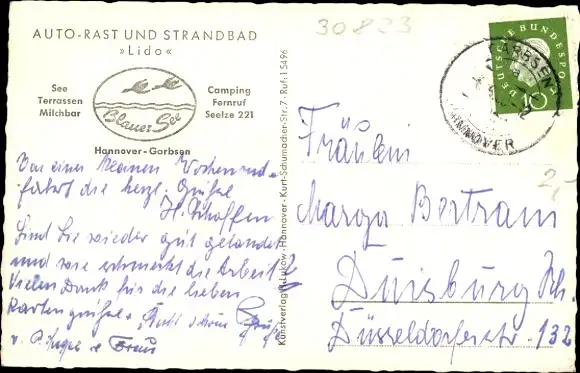 30823
AUTO-RAST UND STRANDBAD
»Lido«
See
Terrassen
Milchbar
Blauer See
Camping
Fernruf
Seelze 221
Hannover-Garbsen
Von einer kleinen Wochenend-
fahrt die herzl. Grüße
Sind Sie wieder gut gelandet
und wie schmeckt die Arbeit?
Vielen Dank für die lieben
Kartengrüße. Recht schöne Grüße
v. und Frau
Kunstverlag Lukow · Hannover · Kurt-Schumacher-Str. 7 · Ruf: 15496
DEUTSCHE BUNDESPOST
10
GARBSEN
HANNOVER
2,-
Fräulein
Marga Bertram
Duisburg
Düsseldorferstr. 132